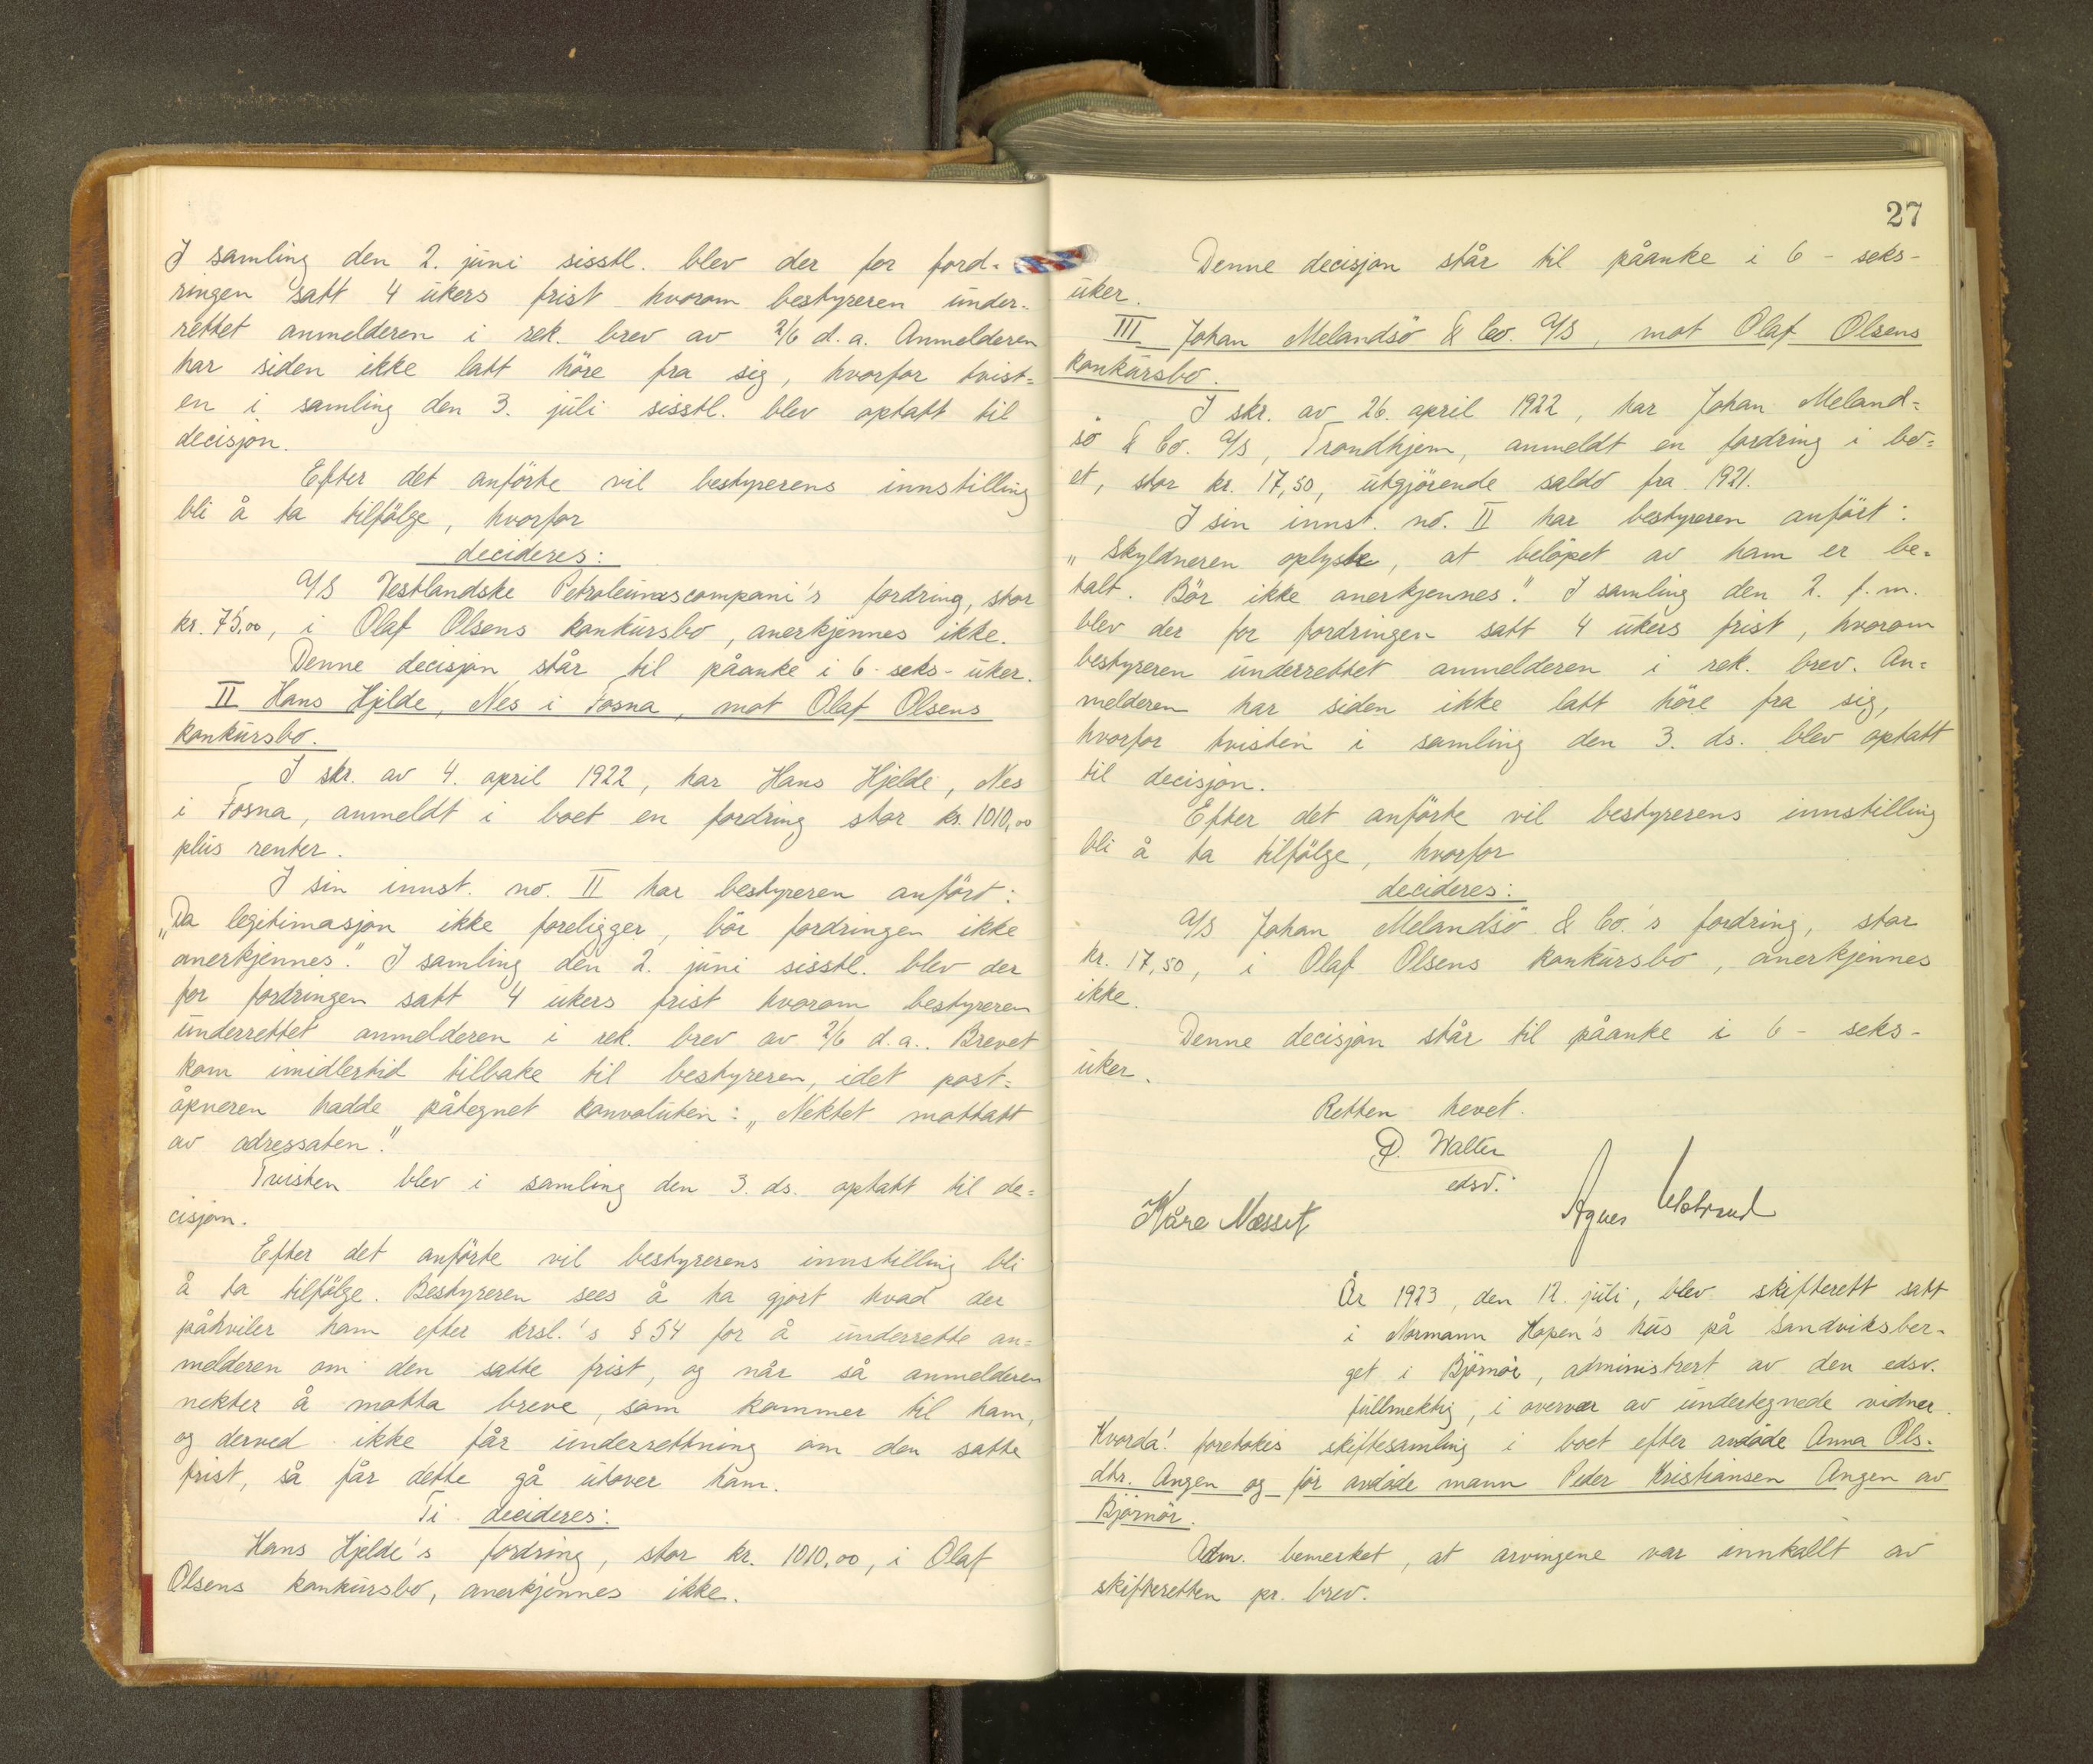 I samling den 2. juni sisstl. blev der for ford-
ringen satt 4 ukers frist hvorom bestyreren under-
rettet anmelderen i rek. brev av 2/6 d.a. Anmelderen
har siden ikke latt höre fra sig, hvorfor tvist=
en i samling den 3. juli sisstl. blev optatt til
decisjon.
Efter det anförte vil bestyrerens innstilling
bli å ta tilfölge, hvorfor
decideres:
A/S Vestlandske Petroleumscompani's fordring, stor
kr. 75,00, i Olaf Olsens konkursbo, anerkjennes ikke.
Denne decisjon står til påanke i 6 - seks - uker.
II Hans Hjelde, Nes i Fosna, mot Olaf Olsens
konkursbo.
I skr. av 4. april 1922, har Hans Hjelde, Nes
i Fosna, anmeldt i boet en fordring stor kr. 1010,00
plus renter.
I sin innst. no. II har bestyreren anfört:
„Da legitimasjon ikke foreligger, bör fordringen ikke
anerkjennes." I samling den 2. juni sisstl. blev der
for fordringen satt 4 ukers frist hvorom bestyreren
underrettet anmelderen i rek. brev av 2/6 d.a.. Brevet
kom imidlertid tilbake til bestyreren, idet post=
åpneren hadde påtegnet konvolutten: „Nektet mottatt
av adressaten."
Tvisten blev i samling den 3. ds. optatt til de=
cisjon.
Efter det anförte vil bestyrerens innstilling bli
å ta tilfölge. Bestyreren sees å ha gjort hvad der
påhviler ham efter krsl.'s § 54 for å underrette an=
melderen om den satte frist, og når så anmelderen
nekter å motta breve, som kommer til ham,
og derved ikke får underrettning om den satte
frist, så får dette gå utover ham.
Ti decideres:
Hans Hjelde's fordring, stor kr. 1010,00, i Olaf
Olsens konkursbo, anerkjennes ikke.
27
Denne decisjon står til påanke i 6 - seks -
uker.
III Johan Melandsö & Co. A/S, mot Olaf Olsens
konkursbo.
I skr. av 26. april 1922, har Johan Meland=
sö & Co. A/S, Trondhjem, anmeldt en fordring i bo=
et, stor kr. 17,50, utgjörende saldo fra 1921.
I sin innst. no. II har bestyreren anfört:
„Skyldneren oplyste, at belöpet av ham er be=
talt. Bör ikke anerkjennes." I samling den 2. f.m.
blev der for fordringen satt 4 ukers frist, hvorom
bestyreren underrettet anmelderen i rek. brev. An=
melderen har siden ikke latt höre fra sig,
hvorfor tvisten i samling den 3. ds. blev optatt
til decisjon.
Efter det anförte vil bestyrerens innstilling
bli å ta tilfölge, hvorfor
decideres:
A/S Johan Melandsö & Co.'s fordring, stor
kr. 17,50, i Olaf Olsens konkursbo, anerkjennes
ikke.
Denne decisjon står til påanke i 6 - seks -
uker.
Retten hevet.
D. Walter
edsv.
Kåre Nesset Agnes
År 1923, den 12. juli, blev skifterett satt
i Normann Hopen's hus på Sandviksber-
get i Björnör, administrert av den edsv.
fullmektig, i overvær av undertegnede vidner.
Hvorda! foretokes skiftesamling i boet efter avdöde Anna Ols-
dtr. Angen og för avdöde mann Peder Kristiansen Angen av
Björnör.
Adm. bemerket, at arvingene var innkallt av
skifteretten pr. brev.